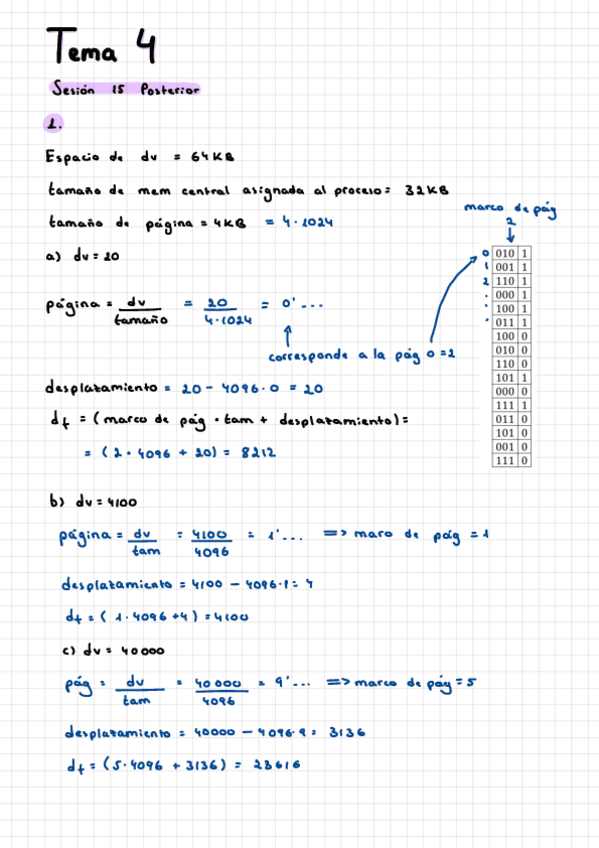 Tema 4
Sesión 15 Posterior
1.
Espacio de dv = 64KB
tamaño de mem central asignada al proceso = 32KB
tamaño de página = 4KB = 4·1024
a) dv = 20
página = dv / tamaño = 20 / 4·1024 = 0'...
corresponde a la pág 0 = 2
marco de pág
2
0 010 1
1 001 1
2 110 1
· 000 1
· 100 1
· 011 1
100 0
010 0
110 0
101 1
000 0
111 1
011 0
101 0
001 0
111 0
desplazamiento = 20 - 4096·0 = 20
df = (marco de pág · tam + desplazamiento) =
= (2·4096 + 20) = 8212
b) dv = 4100
página = dv / tam = 4100 / 4096 = 1'... => maro de pág = 1
desplazamiento = 4100 - 4096·1 = 4
df = (1·4096 + 4) = 4100
c) dv = 40000
pág = dv / tam = 40000 / 4096 = 9'... => marco de pág = 5
desplazamiento = 40000 - 4096·9 = 3136
df = (5·4096 + 3136) = 23616